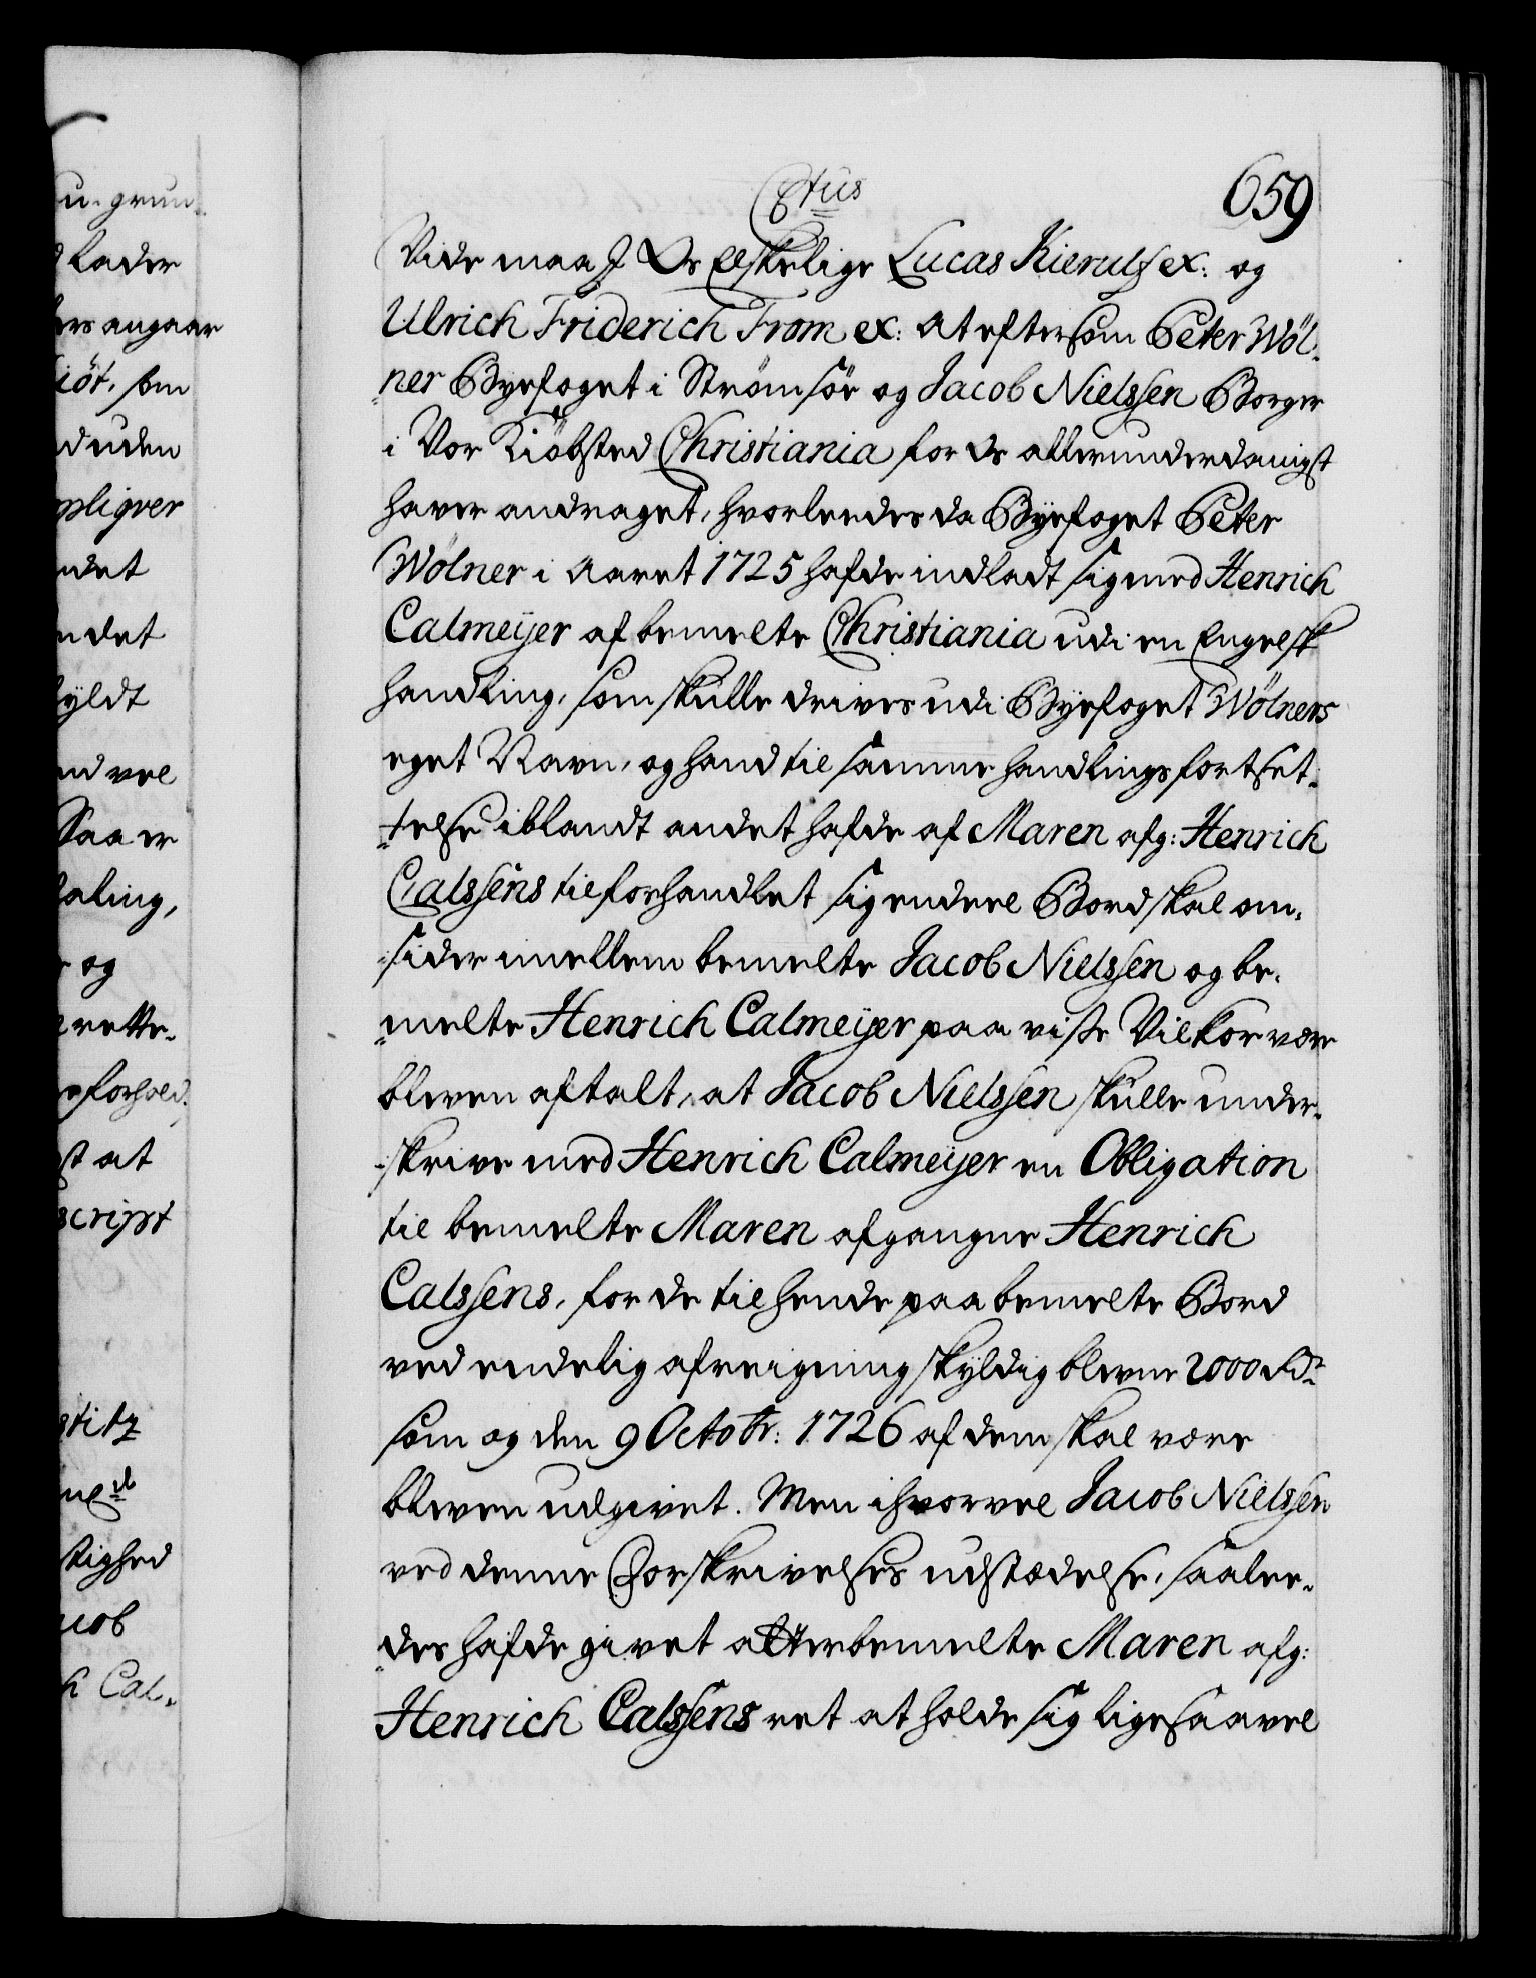 659
C6tus
Vide maa I Os Elskelige Lucas Kierulf ex: og
Ulrich Friderich From ex: at eftersom Peter Wöl-
ner Byefoget i Strömsöe og Jacob Nielssen Borger
i Vor Kiöbsted Christiania for Os allerunderdanigst
haver andraget, hvorledes da Byefoget Peter
Wölner i Aaret 1725 hafde indladt sig med Henrich
Calmeyer af bemelte Christiania udi en Engelsk
handling, som skulle drives udi Byefoget Wölners
eget Navn, og hand til samme handlings fortset-
telse iblandt andet hafde af Maren afg: Henrich
Calssens tilforhandlet sig endeel Bord skal om-
sider imellem bemelte Jacob Nielssen og be-
melte Henrich Calmeyer paa visse Vilkor være
bleven aftalt, at Jacob Nielssen skulle under-
skrive med Henrich Calmeyer en Obligation
til bemelte Maren afgangne Henrich
Calssens, for de til hende paa bemelte Bord
ved endelig afreigning skyldig blevne 2000 Rdr
som og den 9 Octobr: 1726 af dem skal være
bleven udgivet. Men ihvorvel Jacob Nielssen
ved denne Forskrivelses udstædelse, saalee-
des hafde givet atterbemelte Maren afg:
Henrich Calssens ret at holde sig ligesaavel
u- grun-
lader
ers angaar
iöt. som
d uden
pligver
ndet
ndet
fyldt
nd vel
Saa er
aling,
og
rette-
forhold.
st at
script
tighed
cob
h Cal-